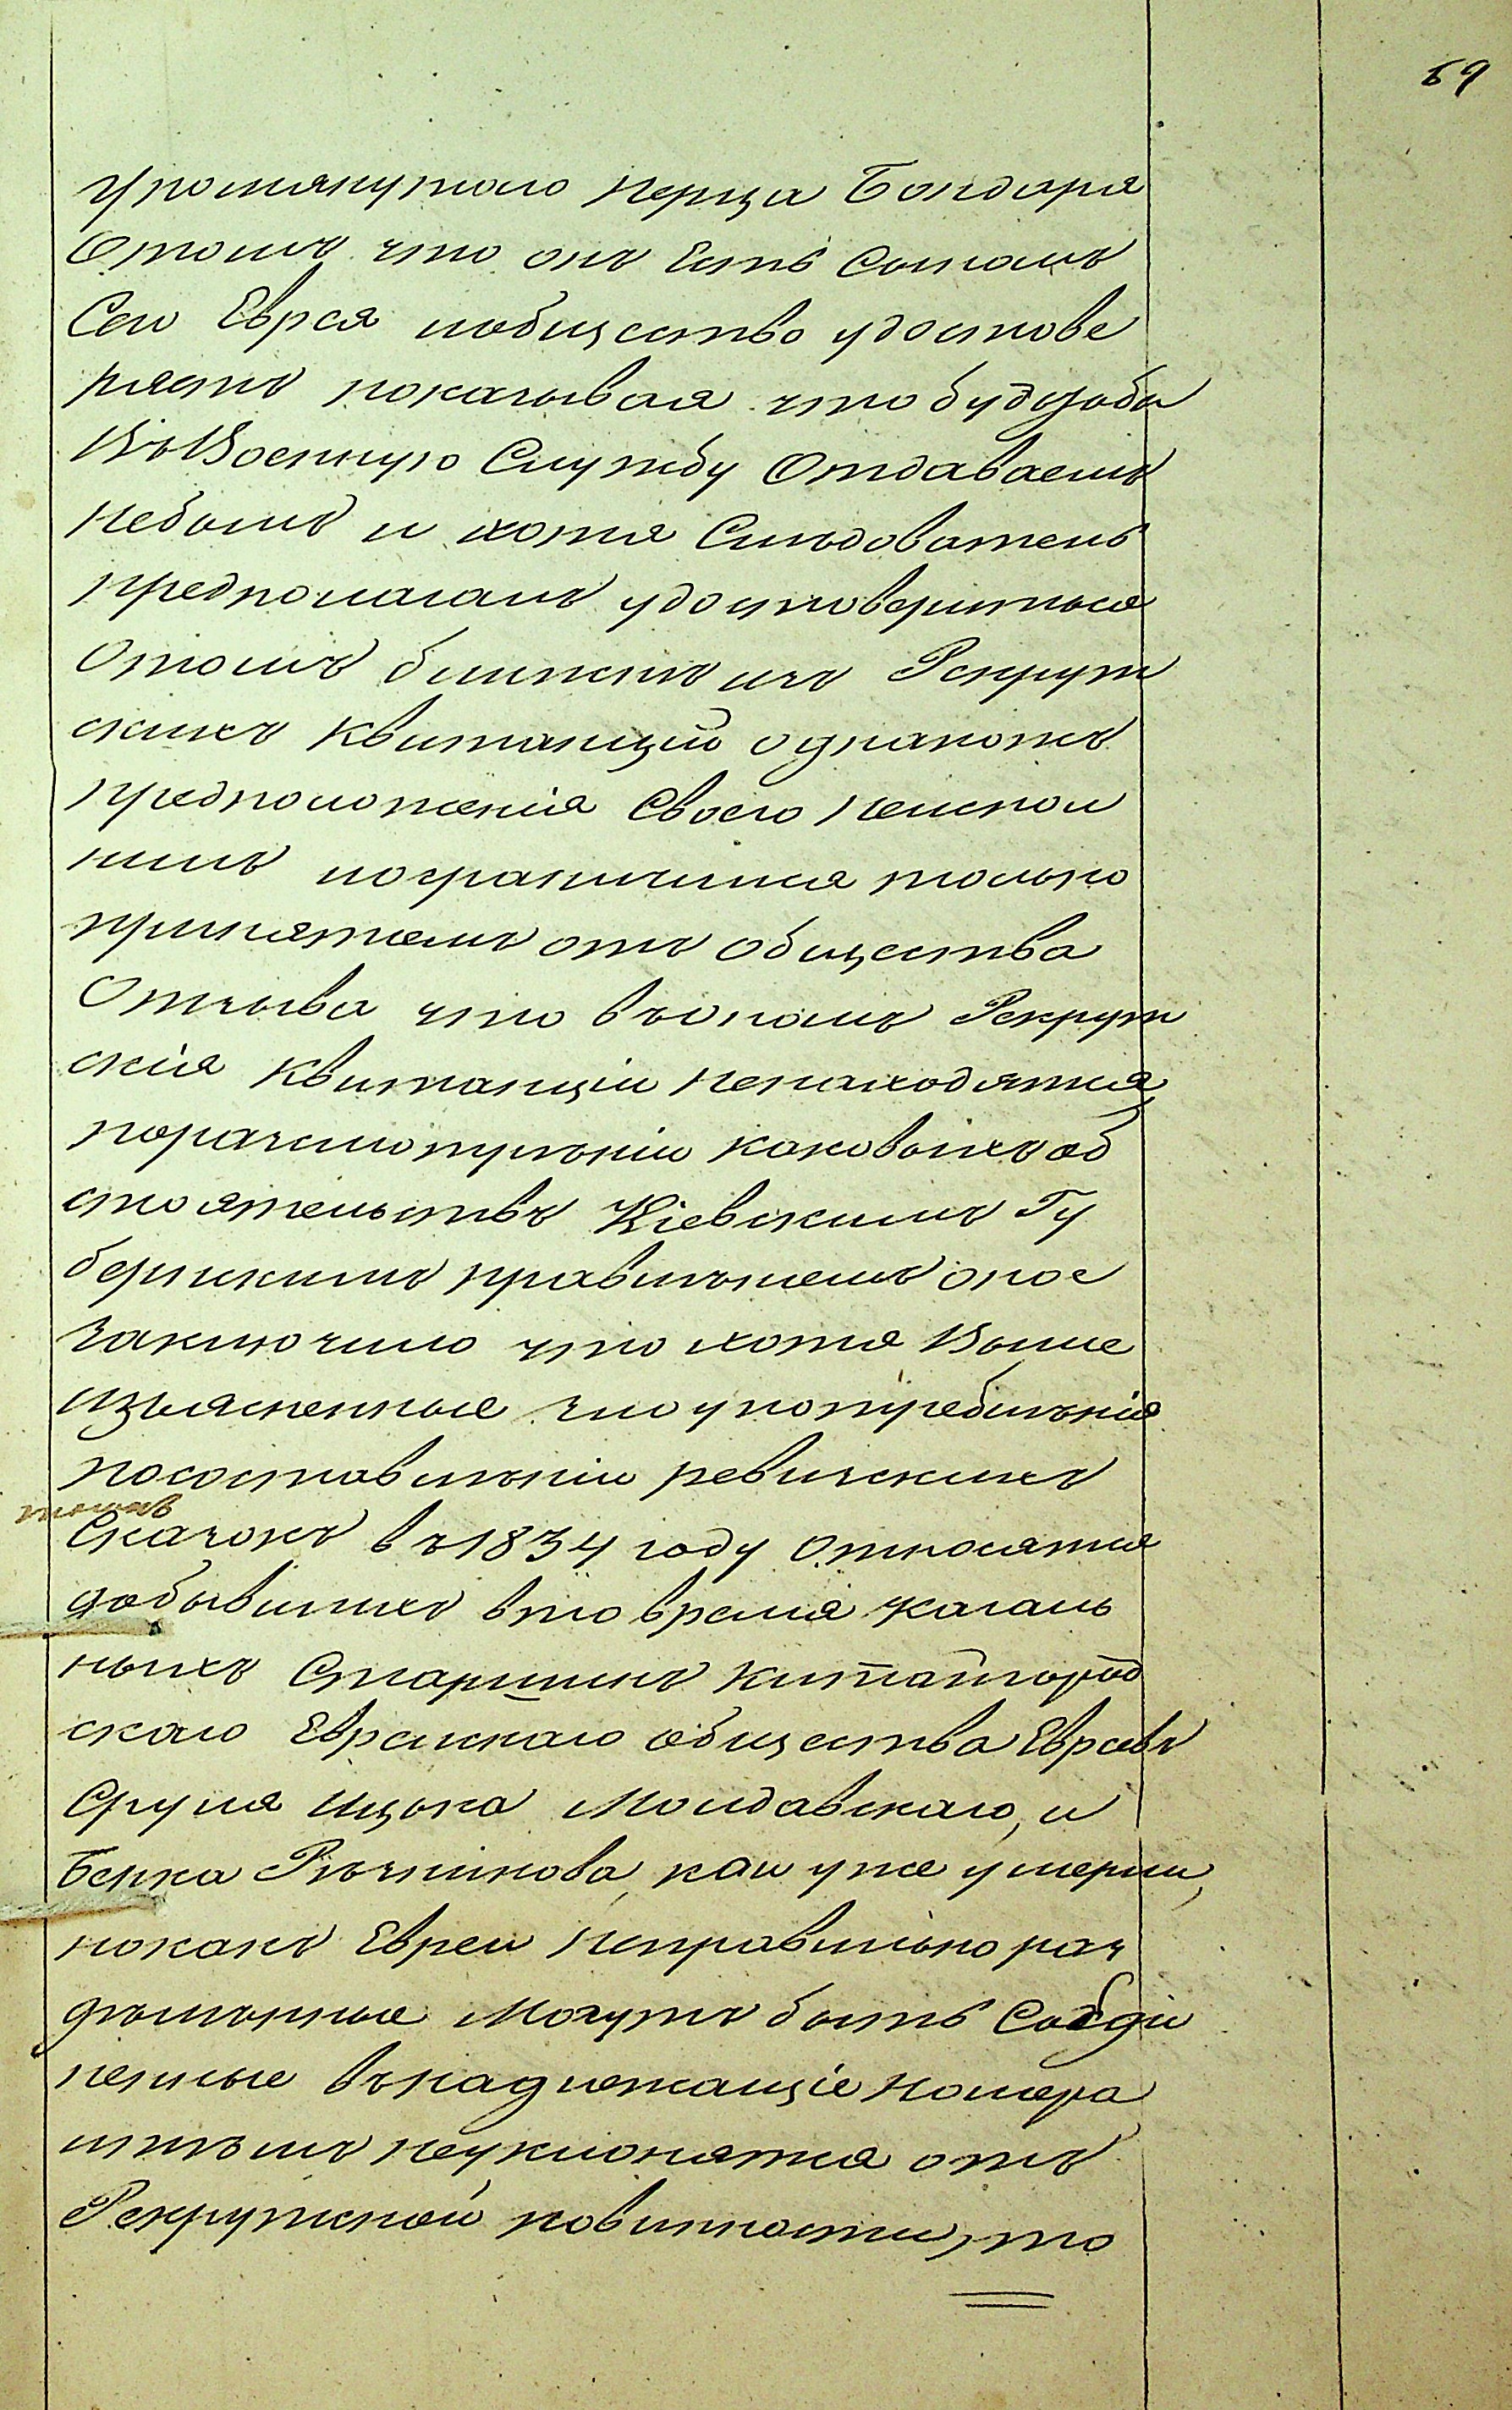 59
упомянутаго Герца Бондаря
Отомъ что онъ Есть Сыномъ
Сего Еврея иобщество удостове
ряетъ показывая что будтобы
Въ Военную Службу Отдаваемъ
небылъ и хотя Слѣдователь
предполагалъ удостовериться
Отомъ ближе изъ Рекрут
скихъ квитанцій однакожъ
предположенія Своего неиспол
нилъ иограничился только
принятіемъ отъ общества
Отзыва что въономъ Рекрут
скія квитанціи ненаходятся,
поразсмотрѣніи каковыхъ об
стоятельствъ Кіевскимъ Гу
бернскимъ правленіемъ оное
заключило что хотя Выше
изъясненные злоупотребленія
посоставленіи ревизскихъ
Сказокъ въ 1834 году относятся
добывшихъ вто время кагаль
ныхъ Старшинъ китайгород
скаго Еврейскаго общества Евреевъ
Сруля Ицька Молдавскаго, и
Берка Рѣзникова, кои уже умерли,
нокакъ Евреи неправильно раз
дѣленные Могутъ быть Соедин
ненные въ надлежащіе номера
итѣмъ неуклонятся отъ
Рекрутской повинности, то